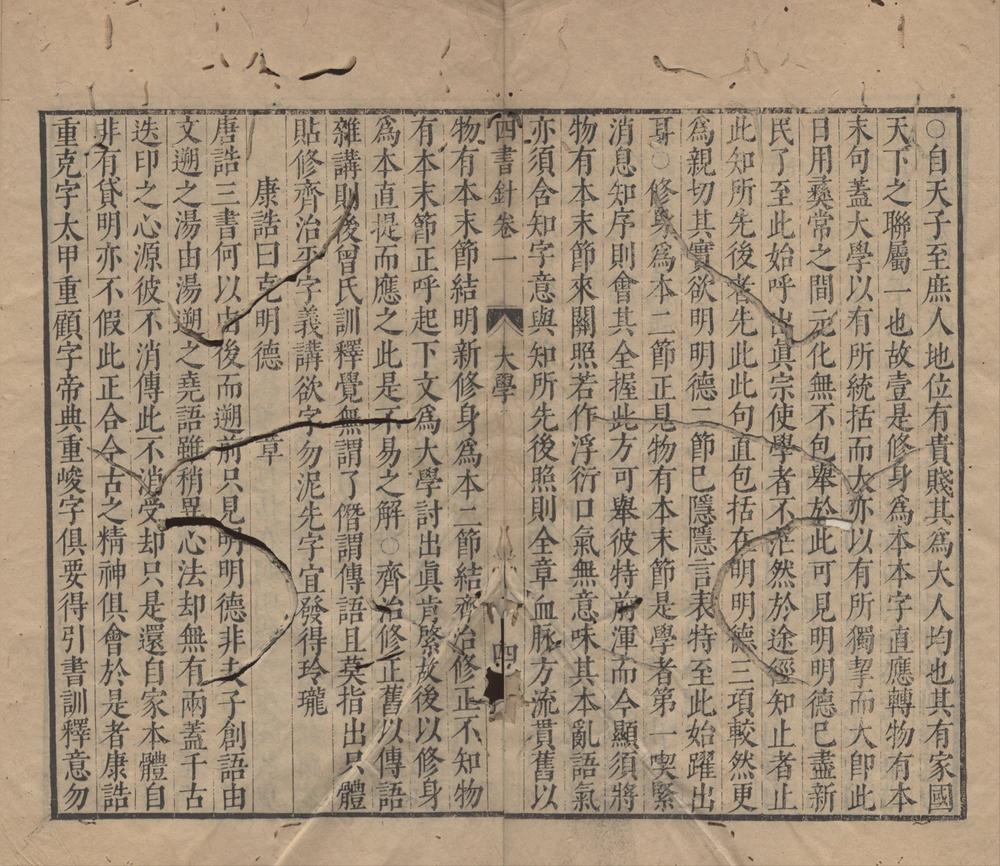 ○自天子至庶人地位有貴賤其為大人均也其有家國
天下之聯屬一也故壹是修身為本本字直應轉物有本
末句蓋大學以有所統括而大亦以有所獨挈而大即此
日用彞常之間元化無不包舉於此可見明明德已盡新
民了至此始呼出眞宗使學者不茫然於途徑知止者止
此知所先後者先此此句直包括在明明德三項較然更
為親切其實欲明明德二節已隱隱言表特至此始躍出
耳○修身為本二節正見物有本末節是學者第一喫緊
消息知序則會其全握此方可舉彼特前渾而今顯須將
物有本末節來關照若作浮衍口氣無意味其本亂語氣
亦須含知字意與知所先後照則全章血脉方流貫舊以
四書針卷一 大學 四
物有本末節結明新修身為本二節結齊治修正不知物
有本末節正呼起下文為大學討出眞肯綮故後以修身
為本直提而應之此是不易之解○齊治修正舊以傳語
雜講則後曾氏訓釋覺無謂了僭謂傳語且莫指出只體
貼修齊治平字義講欲字勿泥先字宜發得玲瓏
康誥曰克明德 章
唐誥三書何以占後而遡前只見明明德非夫子創語由
文遡之湯由湯遡之堯語雖稍異心法却無有兩蓋千古
迭印之心源彼不消傳此不消受却只是還自家本體自
非有貸明亦不假此正合今古之精神俱會於是者康誥
重克字太甲重顧字帝典重峻字俱要得引書訓釋意勿